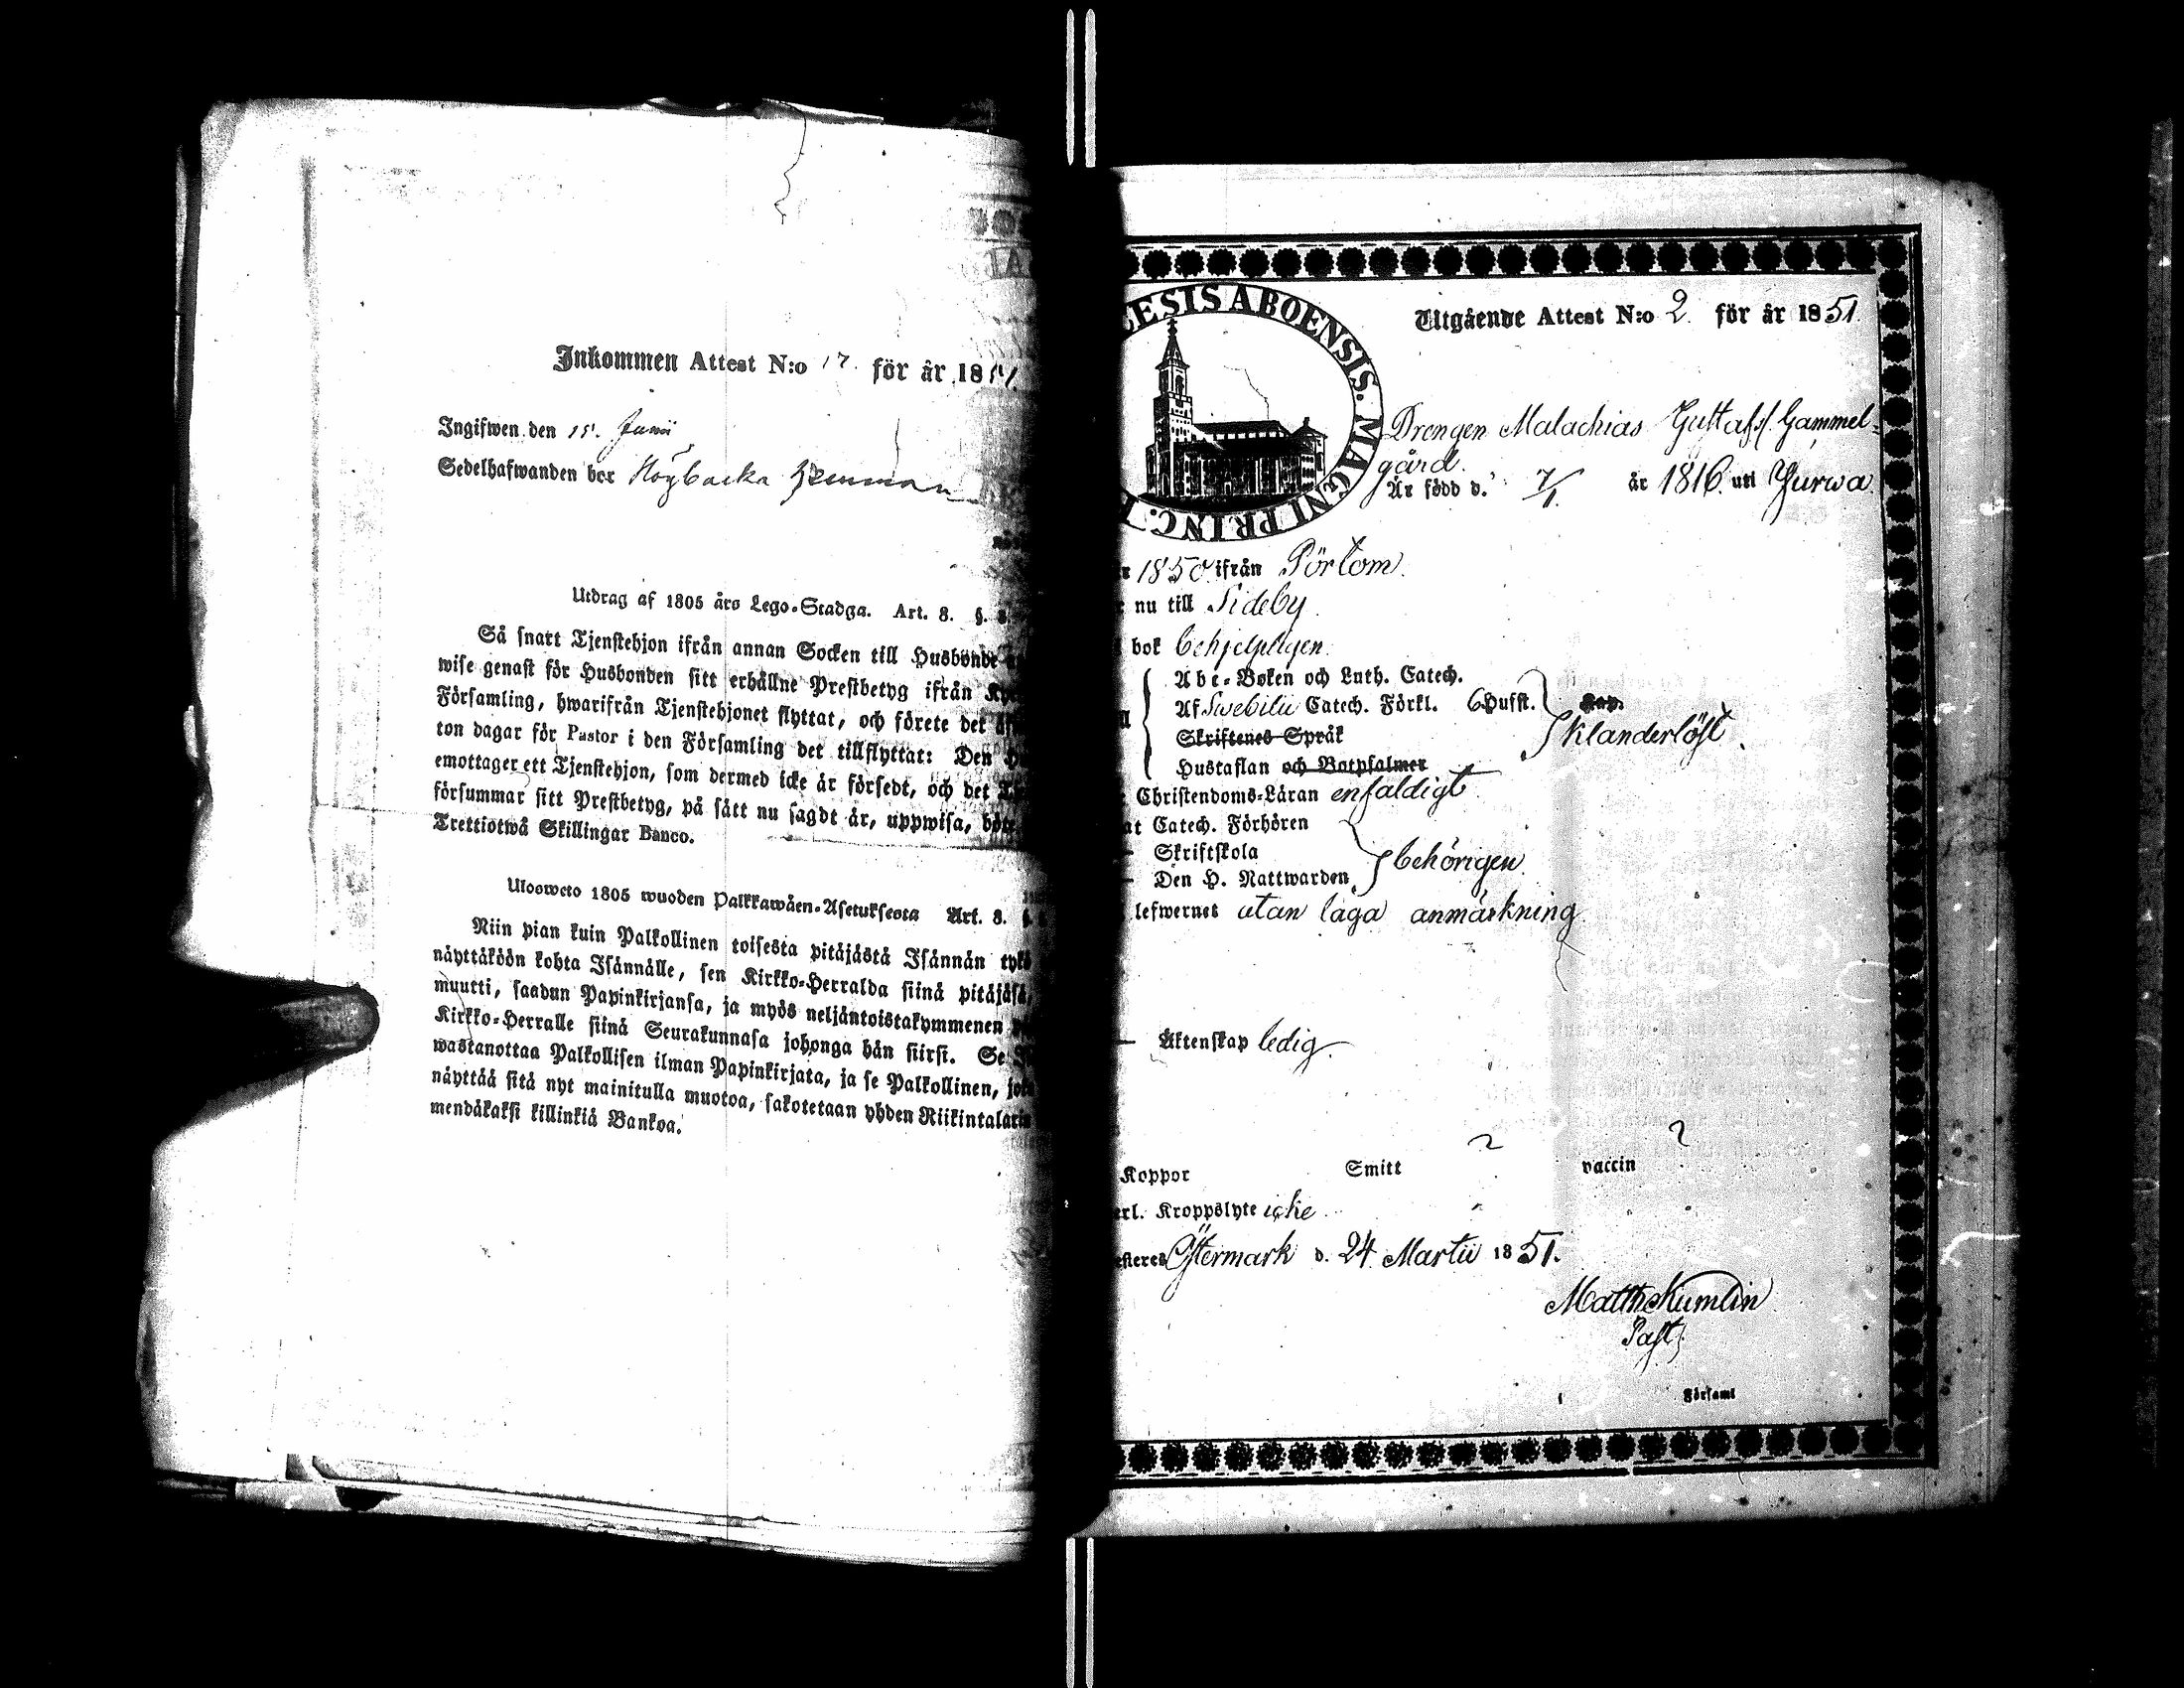 Inkommen Attest N:o 17. för år 1851.
Ingifwen den 15. Junii
Sedelhafwanden bor Högbacka hemman
Utdrag af 1805 års Lego-Stadga. Art. 8. §. 8.
Så snart Tjenstehjon ifrån annan Socken till Husbonde
wise genast för Husbonden sitt erhållne Prestbetyg ifrån
Församling, hwarifrån Tjenstehjonet flyttat, och förete det
ton dagar för Pastor i den Församling det tillflyttat: Den
emottager ett Tjenstehjon, som dermed icke är försedt, och det
försummar sitt Prestbetyg, på sätt nu sagdt är, uppwisa, böte
Trettiotwå Skillingar Banco.
Ulosweto 1805 wuoden Palkkawäen-Asetuksesta Art. 8. §.
Niin pian kuin Palkollinen toisesta pitäjästä Isännän tykö
näyttäköön kohta Isännälle, sen Kirkko-Herralda siinä pitäjäsä,
muutti, saadun Papinkirjansa, ja myös neljäntoistakymmenen
Kirkko-Herralle siinä Seurakunnasa johonga hän siirsi. Se
wastanottaa Palkollisen ilman Papinkirjata, ja se Palkollinen, joka
näyttää sitä nyt mainitulla muotoa, sakotetaan yhden Riikintalarin
mendäkaksi killinkiä Bankoa.
ESIS ABOENSIS. MAGNI PRINC.
Utgående Attest N:o 2. för år 1851.
Drengen Malachias Gustafss. Gammel-
gård.
Är född d. 7/1 år 1816. uti Jurwa.
1850 ifrån Pörtom.
nu till Sideby.
bok behjelpligen.
Abc-Boken och Luth. Catech.
Af Swebilii Catech. Förkl. 6 Hufst. Kap.
Skriftenes Språk
Klanderlöst.
Hustaflan och Botpsalmer
Christendoms-Läran enfaldigt
at Catech. Förhören
— Skriftskola
behörigen.
— Den H. Nattwarden
lefwernet utan laga anmärkning
— Äktenskap ledig.
? ?
Koppor Smitt vaccin
erl. Kroppslyte icke
esteres Östermark d. 24 Martii 1851.
Matth Kumlin
Past.
Församl